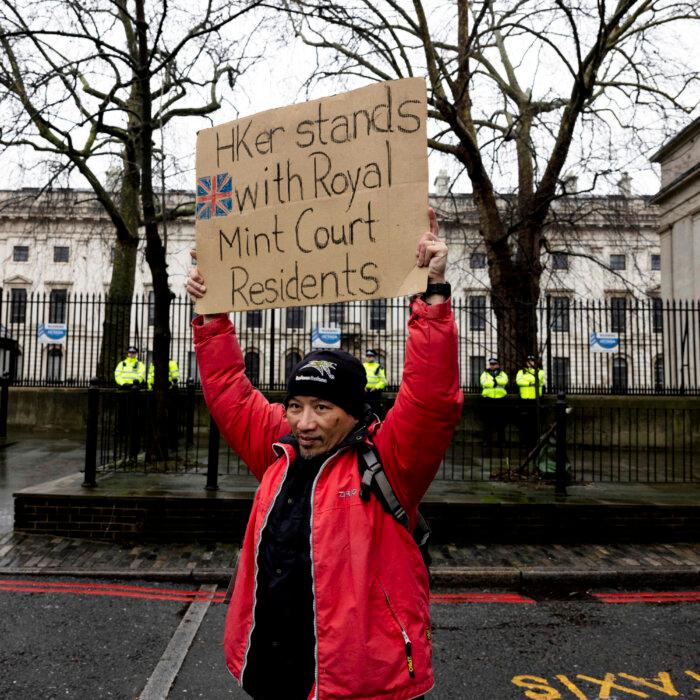 HKer stands
with Royal
Mint Court
Residents
TAXIS